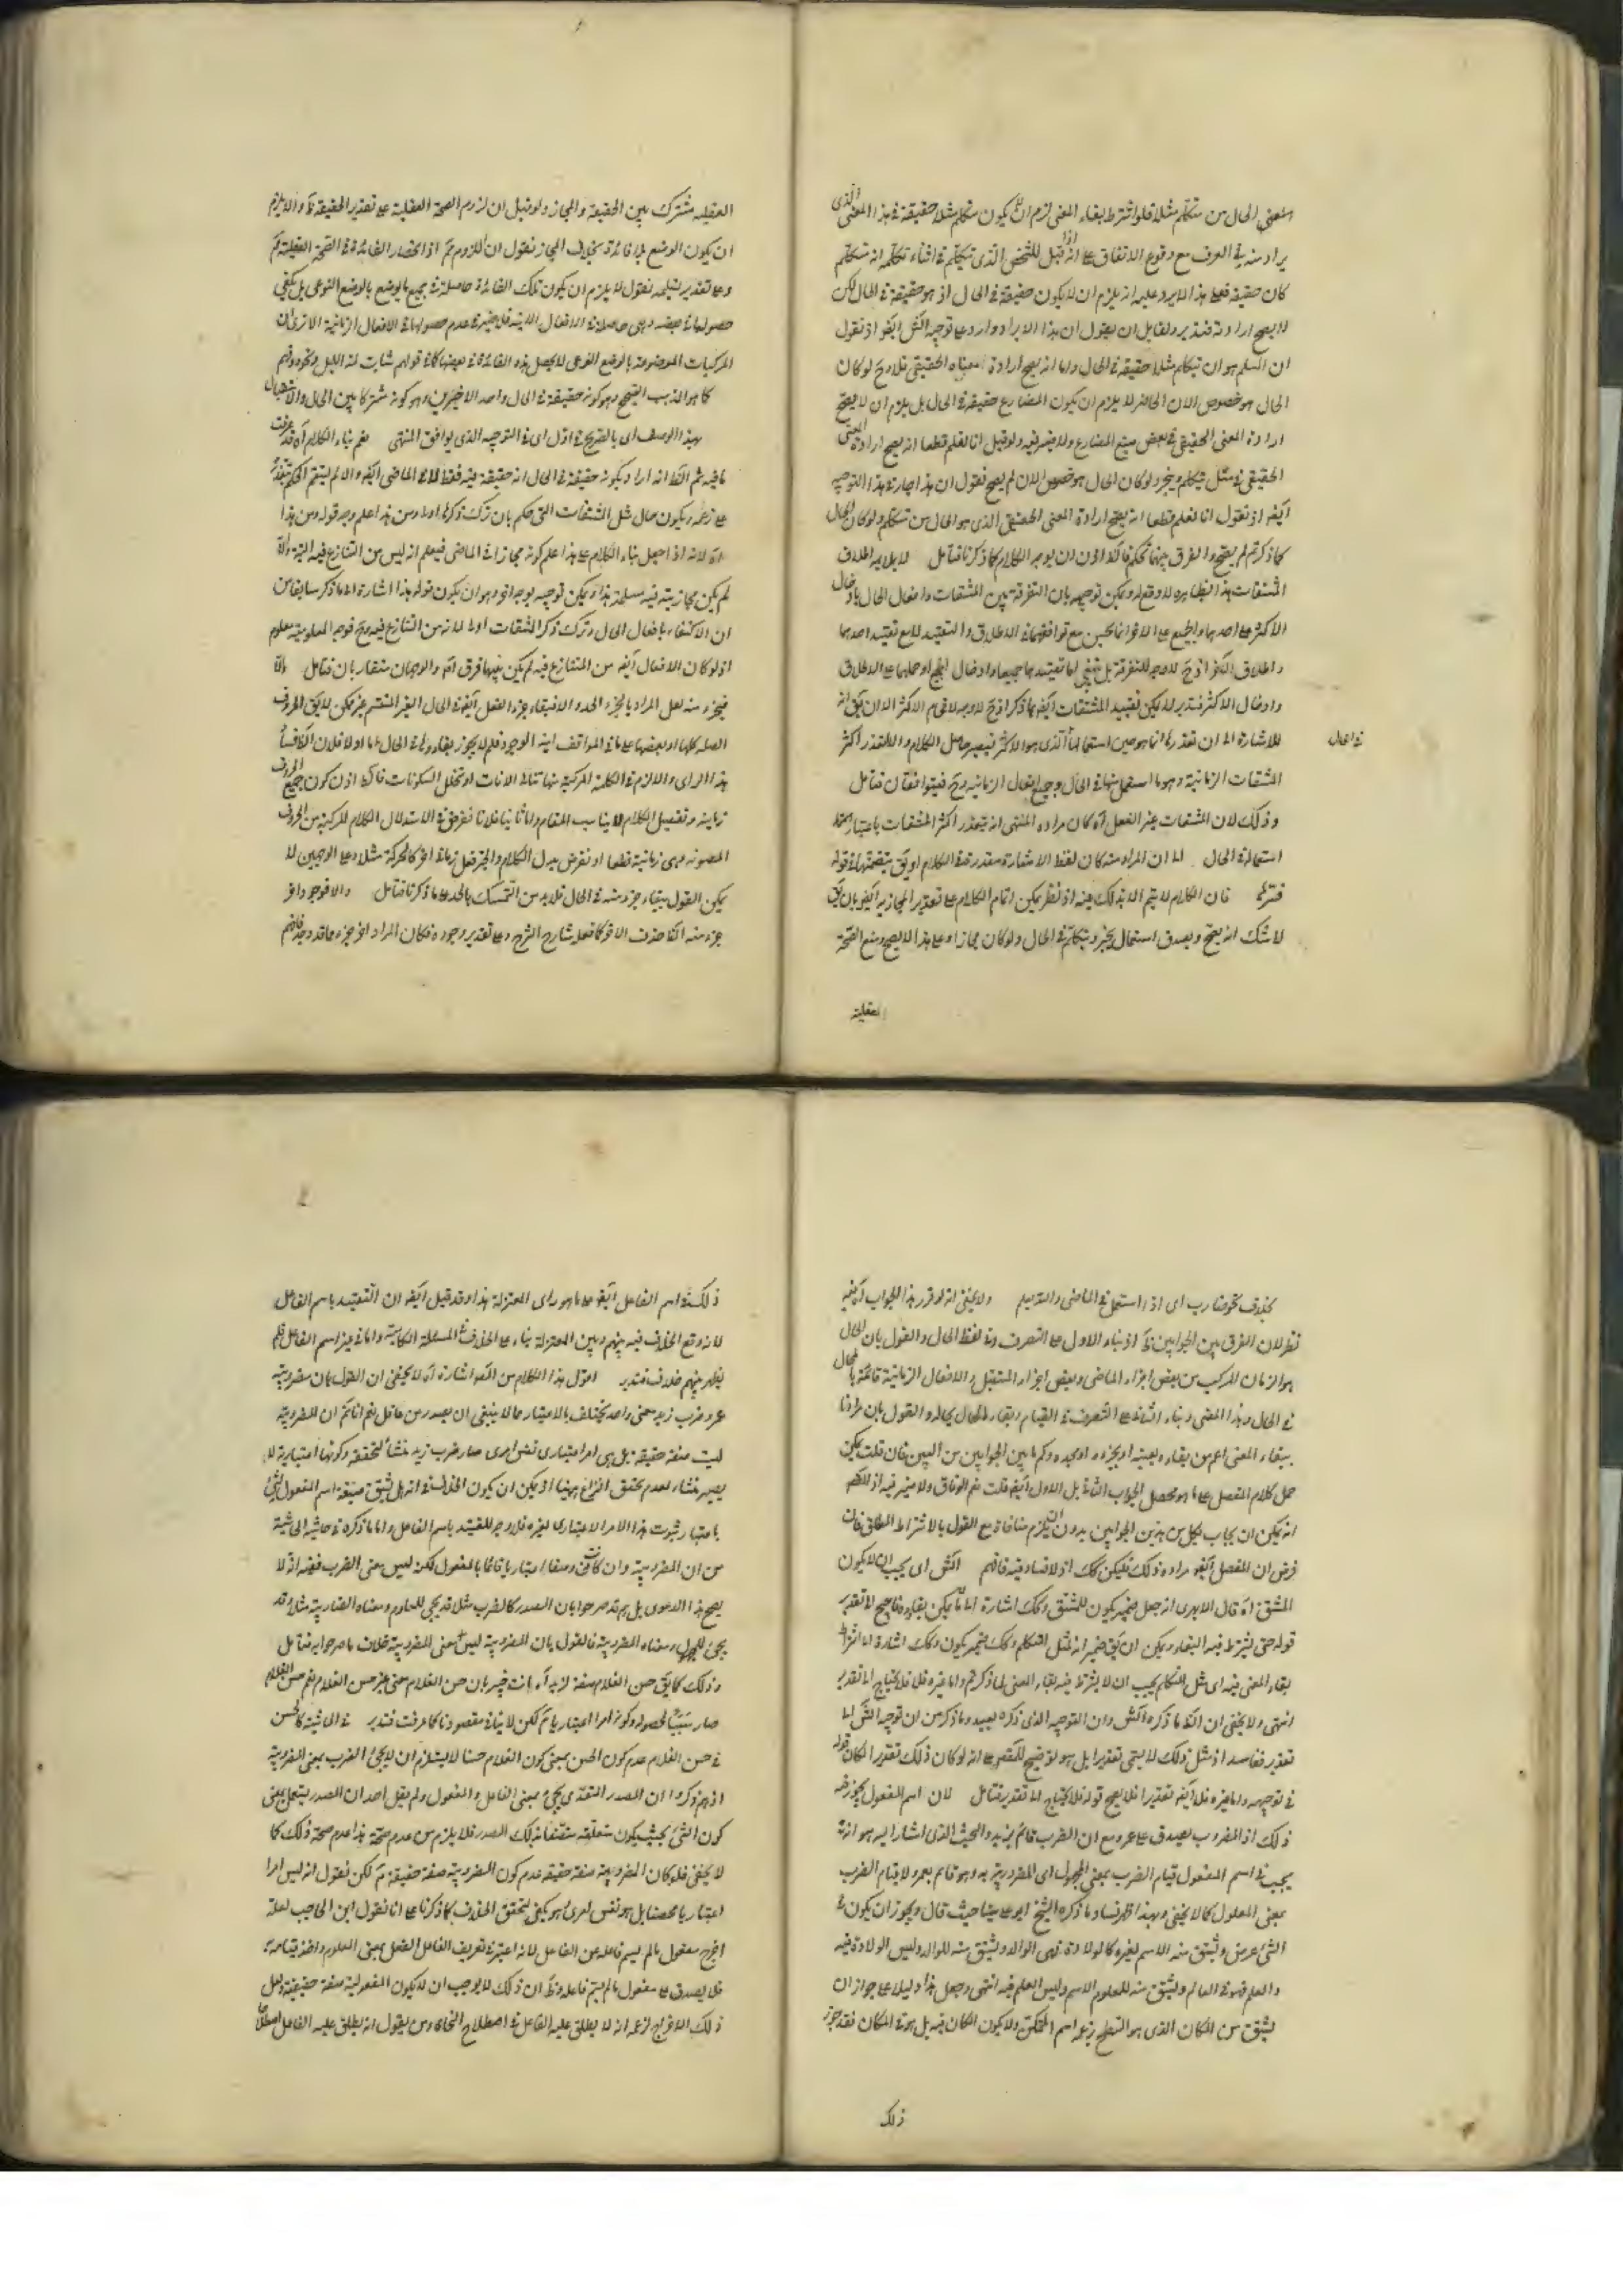 المعنى الحال من متكلم مثلا فلو اشترط بقاء المعنى لزم ان يكون متكلم مثلا حقيقة في هذا المعنى الذي
يراد منه في العرف مع وقوع الاتفاق على انه اذا قيل للشخص الذي يتكلم في اثناء تكلمه انه متكلم
كان حقيقة فعلى هذا لا يرد عليه انه يلزم ان لا يكون حقيقة في الحال اذ هو حقيقة في الحال لكن
لا يصح ارادته فتدبر ولقايل ان يقول ان هذا الايراد وارد على توجيه الش ايضا اذ نقول
ان المسلم هو ان يتكلم مثلا حقيقة في الحال واما انه يصح ارادة معناه الحقيقي فلا وح لو كان
الحال هو خصوص الآن الحاضر لا يلزم ان يكون المضارع حقيقة في الحال بل يلزم ان لا يصح
ارادة المعنى الحقيقي في بعض صيغ المضارع ولا ضير فيه ولو قيل انا نعلم قطعا انه يصح ارادة المعنى
الحقيقي في مثل يتكلم ويخبر ولو كان الحال هو خصوص الآن لم يصح فنقول ان هذا جار في هذا التوجيه
ايضا اذ نقول انا نعلم قطعا انه يصح ارادة المعنى الحقيقي الذي هو الحال من متكلم ولو كان الحال
كما ذكرتم لم يصح والفرق بينهما تحكم فالاولى اذن ان يوجه الكلام كما ذكرنا فتأمل لا يلايم اطلاق
المشتقات هذا
الاكثر على احدهما والجميع على الاخر انما يحسن مع توافقهما في الاطلاق والتقييد لا مع تقييد احدهما
واطلاق الاخر اذ ح لا وجه للتفرقة بل ينبغي اما تقييدهما جميعا وادخال الجميع او حملهما على الاطلاق
وادخال الاكثر فتدبر
للاشارة الى ان تعذرها انما هو حين استعمالها الذي هو الاكثر فيصير حاصل الكلام والا لتعذر اكثر
في الحال
المشتقات الزمانية وهو ما استعمل منها في الحال وجميع افعال الزمانية وح فيتوافقان فتأمل
وذلك لان المشتقات غير الفعل آه كان مراده انتهى انه يتعذر اكثر المشتقات باعتبار
استعماله في الحال الا ان المراد منه كان لفظ الاشارة مقدر في الكلام او يق بتضمنها في قوله
فترك فان الكلام لا يتم الا بذلك فيه اذ نظر يمكن اتمام الكلام على تقدير المجازية ايضا بان يق
لا شك انه يصح ويصدق استعمال يخبر ويتكلم في الحال ولو كان مجازا وعلى هذا لا يصح ومنع الصحة
العقلية
العقلية مشترك بين الحقيقة والمجاز ولو قيل ان لزوم الصحة العقلية على تقدير الحقيقة ظ والا يلزم
ان يكون الوضع بلا فائدة بخلاف المجاز نقول ان اللزوم مم اذ انحصار الفائدة في الصحة العقلية مم
وعلى تقدير تسليمه نقول لا يلزم ان يكون تلك الفائدة حاصلة في جميع ما يوضع بالوضع النوعي بل يكفي
حصولها في بعضه وهي حاصلة في الافعال الآنية فلا ضير في عدم حصولها في الافعال الزمانية الا ترى ان
المركبات الموضوعة بالوضع النوعي لا يحصل هذه الفائدة في بعضها كما في قولهم شابت لمة الليل ونحوه فافهم
كما هو المذهب الصحيح وهو كونه حقيقة في الحال واحد الاخيرين وهو كونه مشتركا بين الحال والاستقبال
بهذا الوصف اي بالصريح في اول اي في التوجيه الذي يوافق المنتهى نعم بناء الكلام آه قد عرفت
ما فيه ثم الظ انه اراد بكونه حقيقة في الحال انه حقيقة فيه فقط لا في الماضي ايضا والا لم يستقم الحكم بتعذره
على زعمه ويكون حال مثل المشتقات التي حكم بان ترك ذكرها اولى ومن هذا علم وجه قوله ومن هذا
آه لانه اذا جعل بناء الكلام على هذا علم كونه مجازا في الماضي فيعلم انه ليس من المتنازع فيه البتة والا
لم يكن مجازيته فيه مسلمة هذا ويمكن توجيهه بوجه اخر وهو ان يكون قوله هذا اشارة الى ما ذكر سابقا من
ان الاكتفاء بافعال الحال وترك ذكر المشتقات اولى لانه من المتنازع فيه وح فوجه المعلومية معلوم
اذ لو كان الافعال ايضا من المتنازع فيه لم يكن بينهما فرق اه والوجهان متقاربان فتأمل والا
فيجزء منه لعل المراد بالجزء الحد
الصلة كلها او بعضها على ما في المواقف
هذا الراي واللازم في الكلمة المركبة منها تتالي الانات او تخلل السكونات
زمانية وتفصيل الكلام لا يناسب المقام واما ثانيا فلانا نفرض في الاستدلال الكلام المركب من الحروف
المصوتة وهي زمانية قطعا او نفرض بدل الكلام والخبر فعل زماني اخر كالحركة مثلا وعلى الوجهين لا
يمكن القول ببقاء جزء منه في الحال فلابد من التمسك بالحد على ما ذكرنا فتأمل والاخر جزء
جزء منه الظ حذف الاخر كما فعله شارح الشرح وعلى تقدير وجوده فكان المراد اخر جزء ما قد وجد فافهم
بخلاف نحو ضارب اي اذا استعمل في الماضي والقديم ولا يخفى انه لو قرر هذا الجواب
نظر لان الفرق بين الجوابين ظ اذ بناء الاول على التصرف في لفظ الحال والقول بان الحال
هو الزمان المركب من بعض اجزاء الماضي وبعض اجزاء المستقبل والافعال الزمانية قائمة بالحال
في الحال وهذا المعنى وبناء الثاني على التصرف في القيام وبقاء الحال بحاله والقول بان مرادنا
ببقاء المعنى اعم من بقاء
حمل كلام المفصل على ما هو محصل الجواب الثاني بل الاول ايضا قلت نعم الوفاق ولا ضير فيه
انه يمكن ان يجاب بكل من هذين الجوابين بدون ان يلزم منافاة مع القول بالاشتراط المطلق فان
فرض ان المفصل ايضا مراده ذلك فليكن كك اذ لا فساد فيه فافهم الش اي يجب ان لا يكون
المشتق آه قال الابهري انه جعل ضمير يكون للمشتق وكك اشارة الى ما يمكن بقاؤه فاحتيج الى تقدير
قوله حتى يشترط فيه البقاء ويمكن ان يق ضمير انه لمثل المتكلم وكك ضمير يكون وكك اشارة الى اشتراط
بقاء المعنى فيه اي مثل المتكلم يجب ان لا يشترط فيه بقاء المعنى لما ذكرتم واما غيره فلا فلا يحتاج الى تقدير
انتهى ولا يخفى ان الظ ما ذكره الش وان التوجيه الذي ذكره بعيد وما ذكر من ان توجيه الش الى
تقدير ففاسد اذ مثل ذلك لا يسمى تقديرا بل هو توضيح للمقص على انه لو كان ذلك تقديرا لكان قوله
في توجيهه واما غيره فلا ايضا تقديرا فلا يصح قوله فلا يحتاج الى تقدير فتأمل لان اسم المفعول يجوز فيه
ذلك اذ المضروب يصدق على عمرو مع ان الضرب قائم بزيد والبحث الذي اشار اليه هو انه
يجب في اسم المفعول قيام الضرب بمعنى المجهول اي المضروبية به وهو قائم بعمرو لا قيام الضرب
بمعنى المعلول كما لا يخفى وبهذا ظهر فساد ما ذكره الشيخ ابو علي سينا حيث قال ويجوز ان يكون في
الشئ عرض ويشتق منه الاسم لغيره كالولادة فهي الوالد ويشتق منه للوالد وليس الولادة فيه
والعلم فهو في العالم ويشتق منه للمعلوم الاسم وليس العلم فيه انتهى وجعل هذا دليلا على جواز ان
يشتق من المكان الذي هو السطح بزعمه اسم المتمكن ولا يكون المكان فيه بل هو في المكان فقد جوز
ذلك
ذلك في اسم الفاعل ايضا على ما هو راى المعتزلة هذا وقد قيل ايضا ان التقييد باسم الفاعل
لانه وقع الخلاف فيه بينهم وبين المعتزلة بناء على الخلاف في المسئلة الكلامية واما في غير اسم الفاعل فلم
يظهر بينهم خلاف فتدبر اقول هذا الكلام من المص اشارة آه لا يخفى ان القول بان مضروبية
عمرو وضرب زيد معنى واحد يختلف بالاعتبار مما لا ينبغي ان يصدر من عاقل نعم انا نم ان المضروبية
ليست صفة حقيقة بل هي امر اعتباري نفس امري صار ضرب زيد منشأ لتحققه وكونها اعتبارية لا
يصير منشاء لعدم تحقق النزاع هيهنا اذ يمكن ان يكون الخلاف في انه هل يشتق صيغة اسم المفعول لشئ
باعتبار ثبوت هذا الامر الاعتباري لغيره فلا وجه للتقييد باسم الفاعل واما ما ذكره في حاشية الحاشية
من ان المضروبية وان كانت وصفا اعتباريا قائما بالمفعول لكن ليس معنى الضرب ففيه اذ لا
يصح هذا الدعوى بل هم قد صرحوا بان المصدر كالضرب مثلا قد يجئ للمعلوم ومعناه الضاربية مثلا وقد
يجئ للمجهول ومعناه المضروبية فالقول بان المضروبية ليس معنى المضروبية خلاف ما صرحوا به فتأمل
وذلك كما يق حسن الغلام صفة لزيد آه انت خبير بان حسن الغلام معنى غير حسن الغلام نعم حسن الغلام
صار سببا لحصوله وكونه امرا اعتباريا مم لكن لا ينافي مقصودنا كما عرفت فتدبر في الحاشية كالحسن
في حسن الغلام عدم كون الحسن بمعنى كون الغلام حسنا لا يستلزم ان لا يجئ الضرب بمعنى المضروبية
اذ هم ذكروا ان المصدر المتعدي يجئ بمعنى الفاعل والمفعول ولم يقل احد ان المصدر يستعمل بمعنى
كون الشئ بحيث يكون متعلقه متصفا بذلك المصدر فلا يلزم من عدم صحة هذا عدم صحة ذلك كما
لا يخفى فلو كان المضروبية صفة حقيقة عدم كون المضروبية صفة حقيقة مم لكن نقول انه ليس امرا
اعتباريا محضا بل هو نفس امري وهو يكفي لتحقق الخلاف كما ذكرنا على انا نقول ابن الحاجب لعله
اخرج مفعول ما لم يسم فاعله عن الفاعل لانه اعتبر في تعريف الفاعل الفعل بمعنى المعلوم واخذ قيامه به
فلا يصدق على مفعول ما لم يسم فاعله وظ ان ذلك لا يوجب ان لا يكون المفعولية صفة حقيقية ولعل
ذلك الاخراج لزعمه انه لا يطلق عليه الفاعل في اصطلاح النحاة ومن يقول انه يطلق عليه الفاعل اصطلاحا